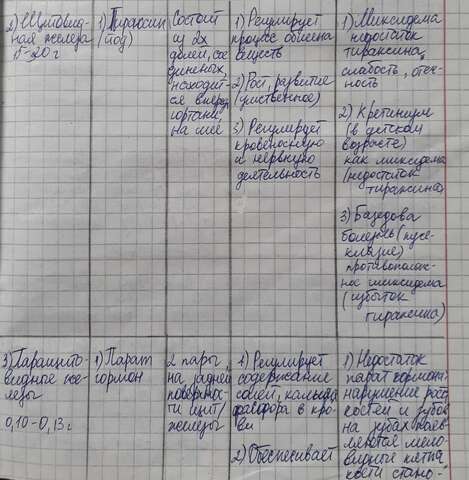 2) Щитовид-
ная железа
15-20 г
1) Тираксин
(йод)
Состоит
из 2х
долей, сое
диненых,
находит-
ся впереди
гортани,
на шее
1) Регулирует
процесс обмена
веществ
2) Рост, развитие
(умственное)
3) Регулирует
кровеносную
и нервную
деятельность
1) Миксидема
недостаток
тираксина,
слабость, отеч-
ность
2) Кретинизм
(в детском
возрасте)
как миксидема
(недостаток
тираксина)
3) Базедова
болезнь (пуче-
глазие)
противополож-
ное миксидема
(избыток
тираксина)
3) Паращито-
видные же-
лезы
0,10-0,13 г
1) Парат
гормон
2 пары,
на задней
поверхнос-
ти щит/
железы
1) Регулирует
содержание
солей, кальция
фосфора в кро-
ви
2) Обеспесивает
1) Недостаток
парат гормона:
нарушение рост
костей и зубов
на зубах появ-
ляются мело-
видные пятна,
кости стано-